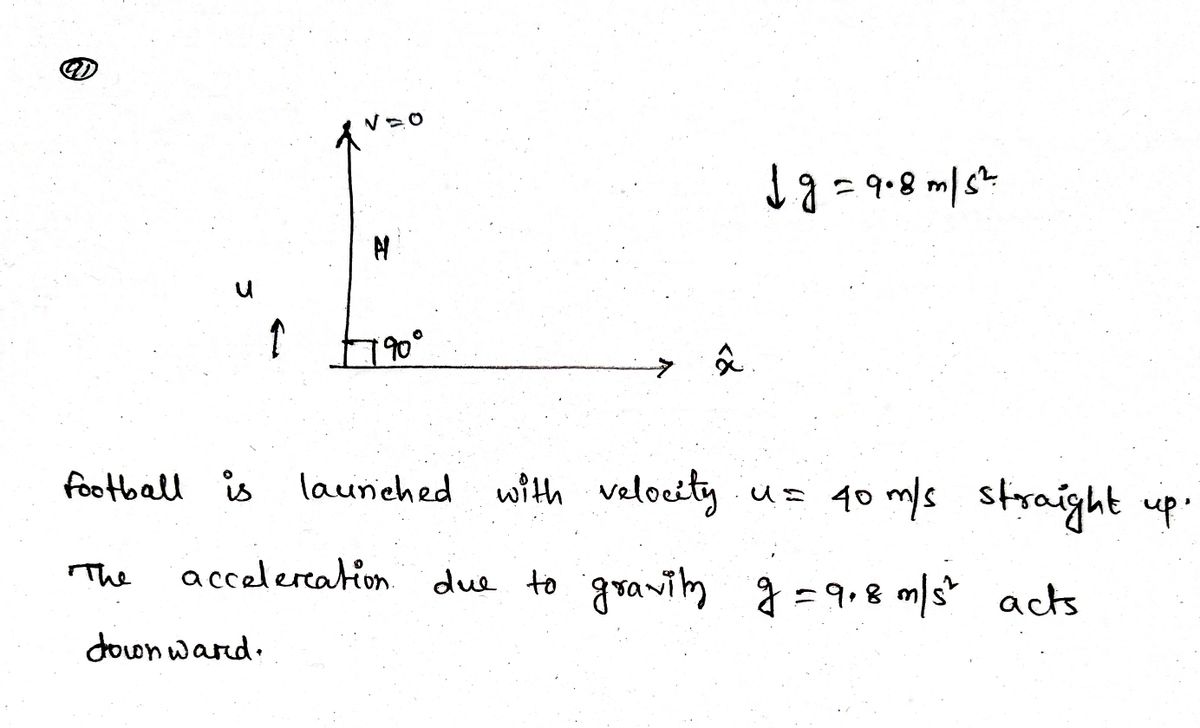 v=0
↓g = 9.8 m/s²
H
u
↑
90°
x̂
football is launched with velocity u = 40 m/s straight up.
The accelereation due to gravity g = 9.8 m/s² acts
downward.